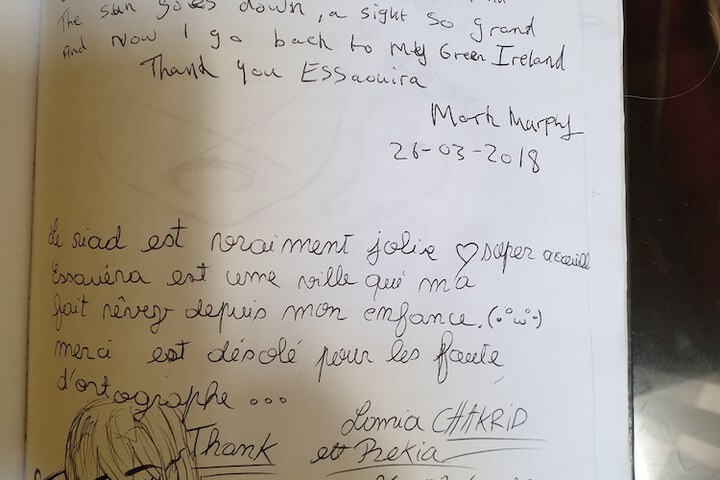 The sun goes down, a sight so grand
And Now I go back to my Green Ireland
Thank you ESSaouira
Mark Murphy
26-03-2018
Le riad est vraiment jolie ♡ super accueill
Essauéra est une ville qui m'a
fait rêvez depuis mon enfance. (•°ω°•)
merci est désolé pour les faute
d'ortographe ...
Lamia CHAKRID
Thank et Rekia